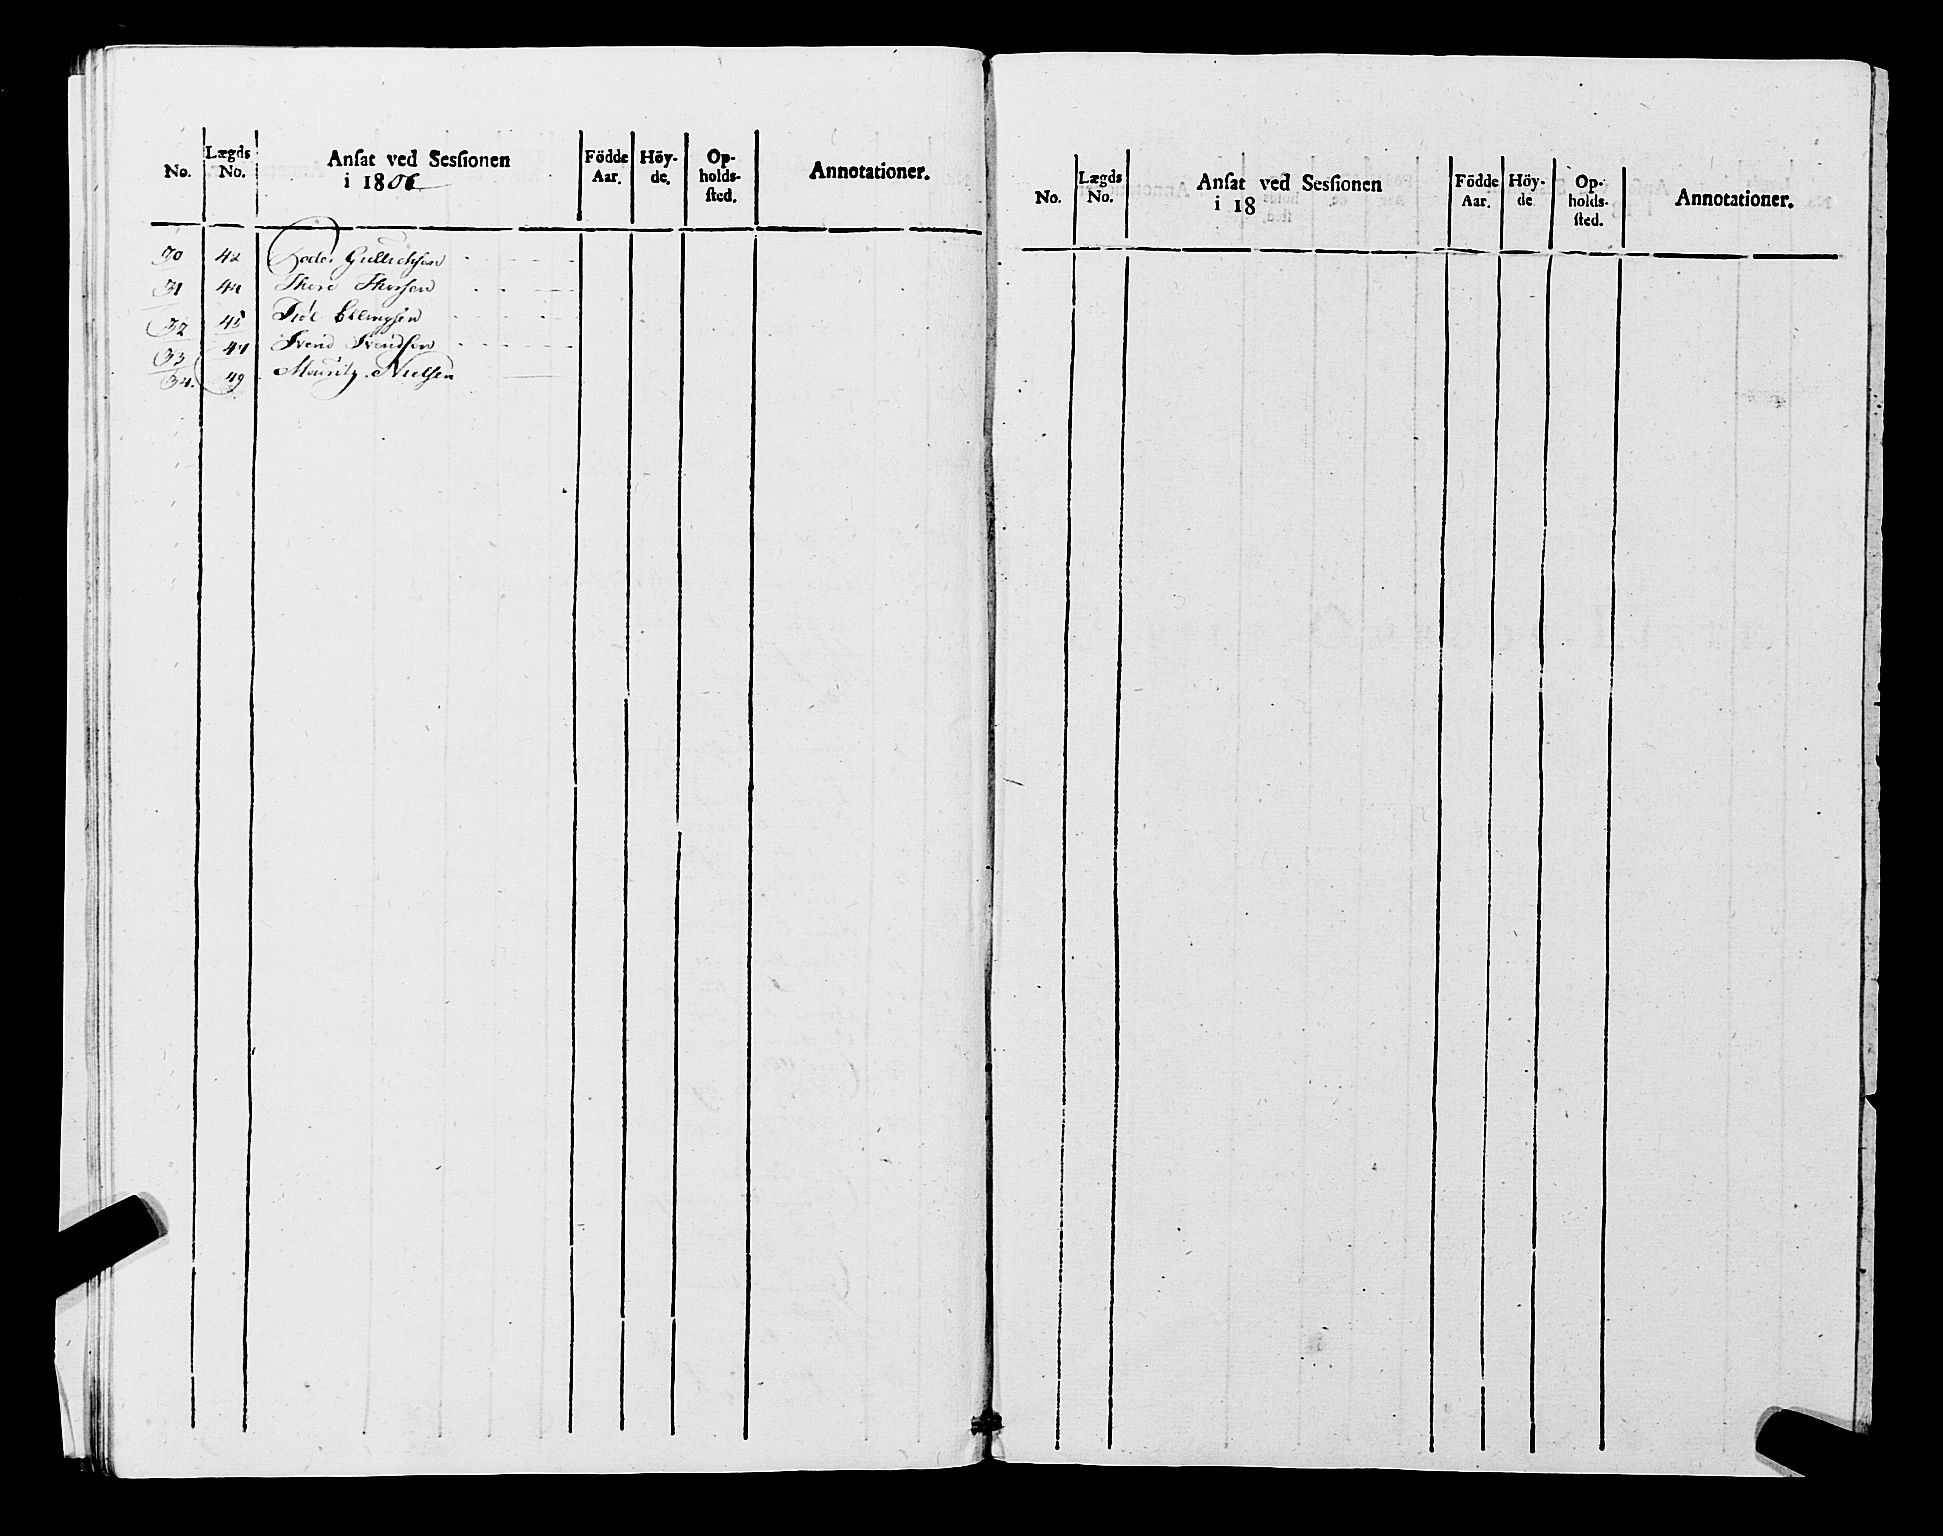 No. Lægds No. Anſat ved Sesſionen i 1806 Födde Aar. Höy-de. Op-holds-ſted. Annotationer.
30 42 Peder Gullichsen
31 44 Thore Thorsen
32 45 Ellingsen
33 47 Svend Svendsen
34. 49 Mauritz Nielsen
No. Lægds No. Anſat ved Sesſionen i 18 Födde Aar. Höy-de Op-holds-ſted. Annotationer.